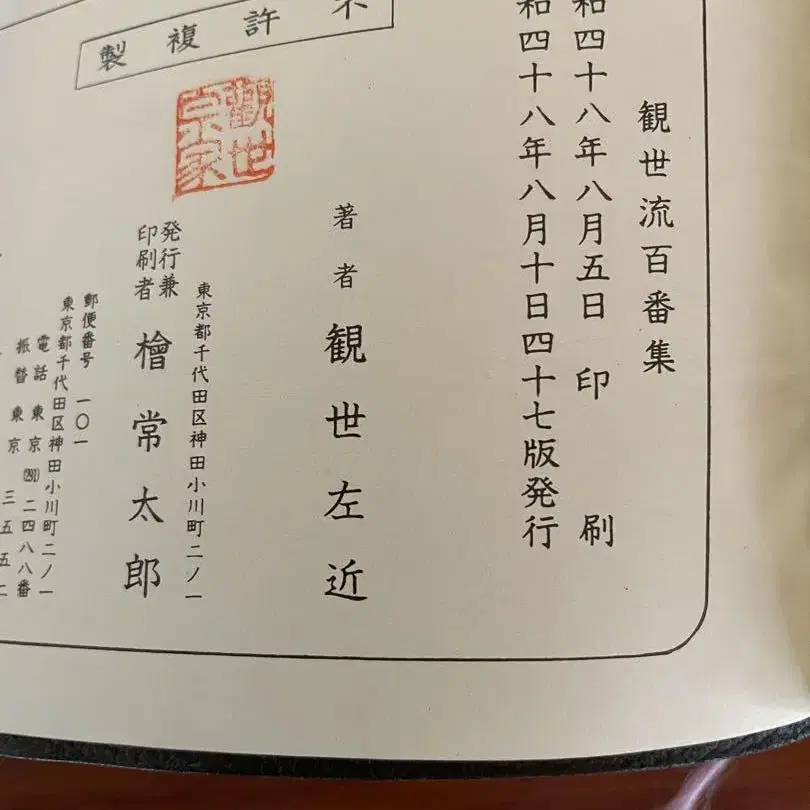 観世流百番集
和四十八年八月五日 印刷
和四十八年八月十日四十七版発行
許複製
観世宗家
著者 観世左近
東京都千代田区神田小川町二ノ一
発行兼
印刷者 檜常太郎
郵便番号 一〇一
東京都千代田区神田小川町二ノ一
電話 東京(291)二四八八番
振替 東京 三五五二